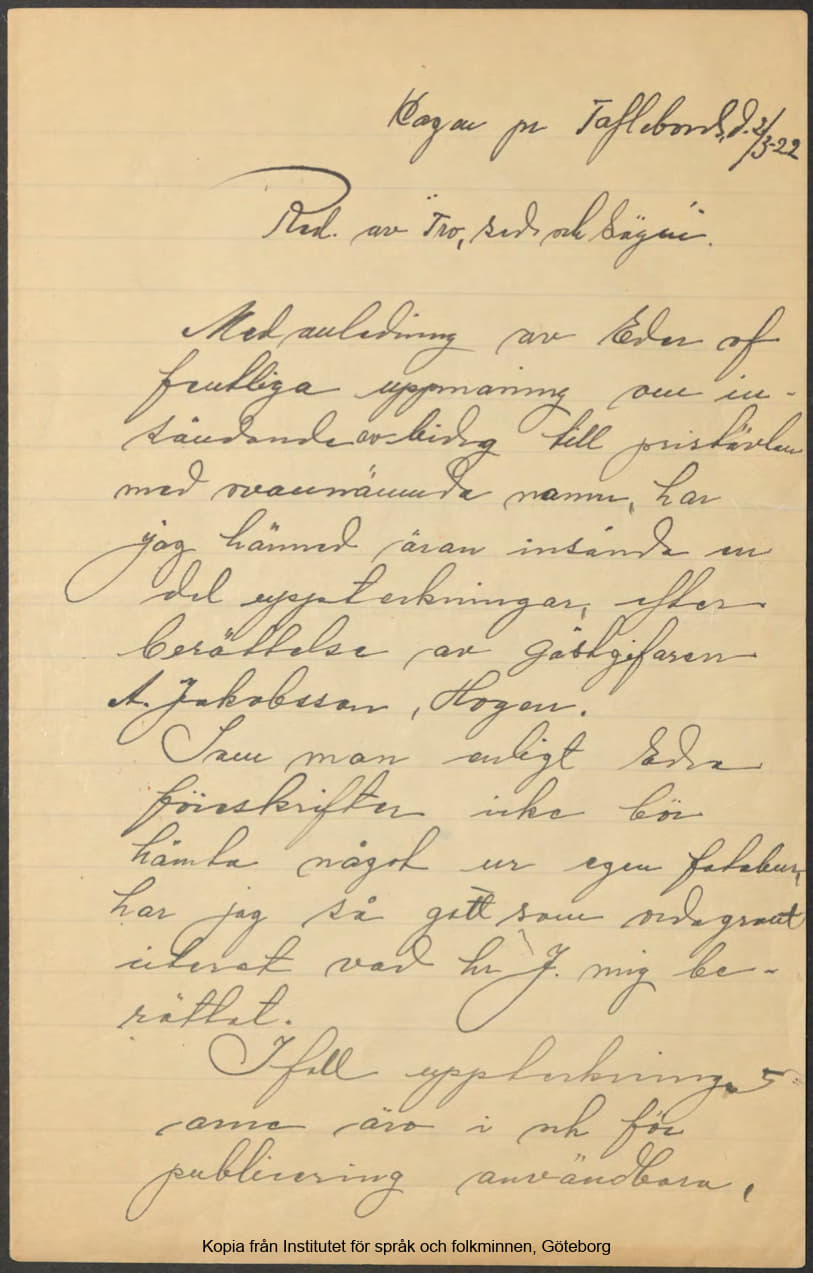 Hogen pr Taflebord, d. 2/3-22
Red. av "Tro, sed och Sägen".
Med anledning av Eder of
fentliga uppmaning om in-
sändande av bidrag till pristävlan
med ovannämnda namn, har
jag härmed äran insända en
del uppteckningar, efter
berättelse av gästgifaren
A. Jakobsson, Hogen.
Som man enligt Edra
föreskrifter icke bör
hämta något ur egen fatabur,
har jag så gott som ordagrant
citerat vad hr J. mig be-
rättat.
Ifall uppteckning-
arne äro i och för
publicering användbara,
Kopia från Institutet för språk och folkminnen, Göteborg